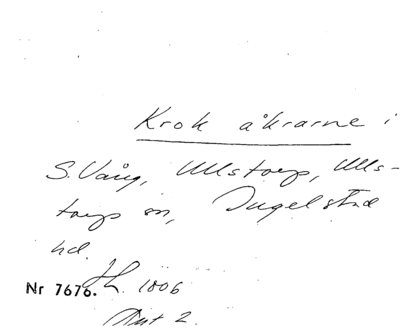 Krok åkrarne i
S. Vång, Ullstorp, Ulls-
torps sn, Ingelstad
hd.
Nr 7676. 1806
Akt 2.